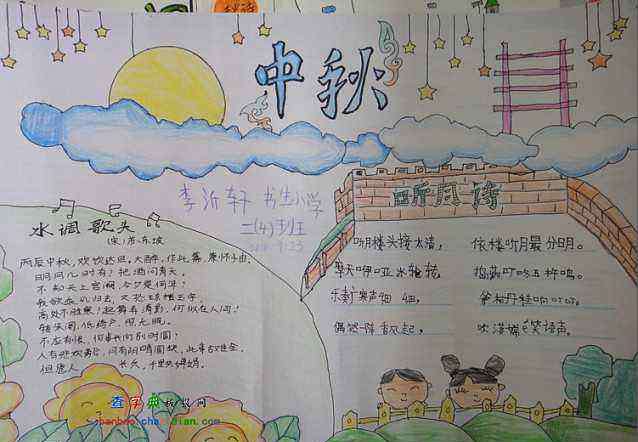 中秋
李沂轩 书生小学
二(4)班
水调歌头
(宋)苏东坡
丙辰中秋,欢饮达旦,大醉,作此篇,兼怀子由。
明月几时有?把酒问青天。
不知天上宫阙,今夕是何年?
我欲乘风归去,又恐琼楼玉宇,
高处不胜寒!起舞弄清影,何似在人间!
转朱阁,低绮户,照无眠。
不应有恨,何事长向别时圆?
人有悲欢离合,月有阴晴圆缺,此事古难全。
但愿人长久,千里共婵娟。
听月诗
听月楼头接太清,
依楼听月最分明。
咿呀冰轮
捣药叮咚玉杵鸣。
乐奏广 声细细,
丹桂响叮叮。
偶然一阵香风起,
笑语声。
查字典板报网
banbao.chazidian.com